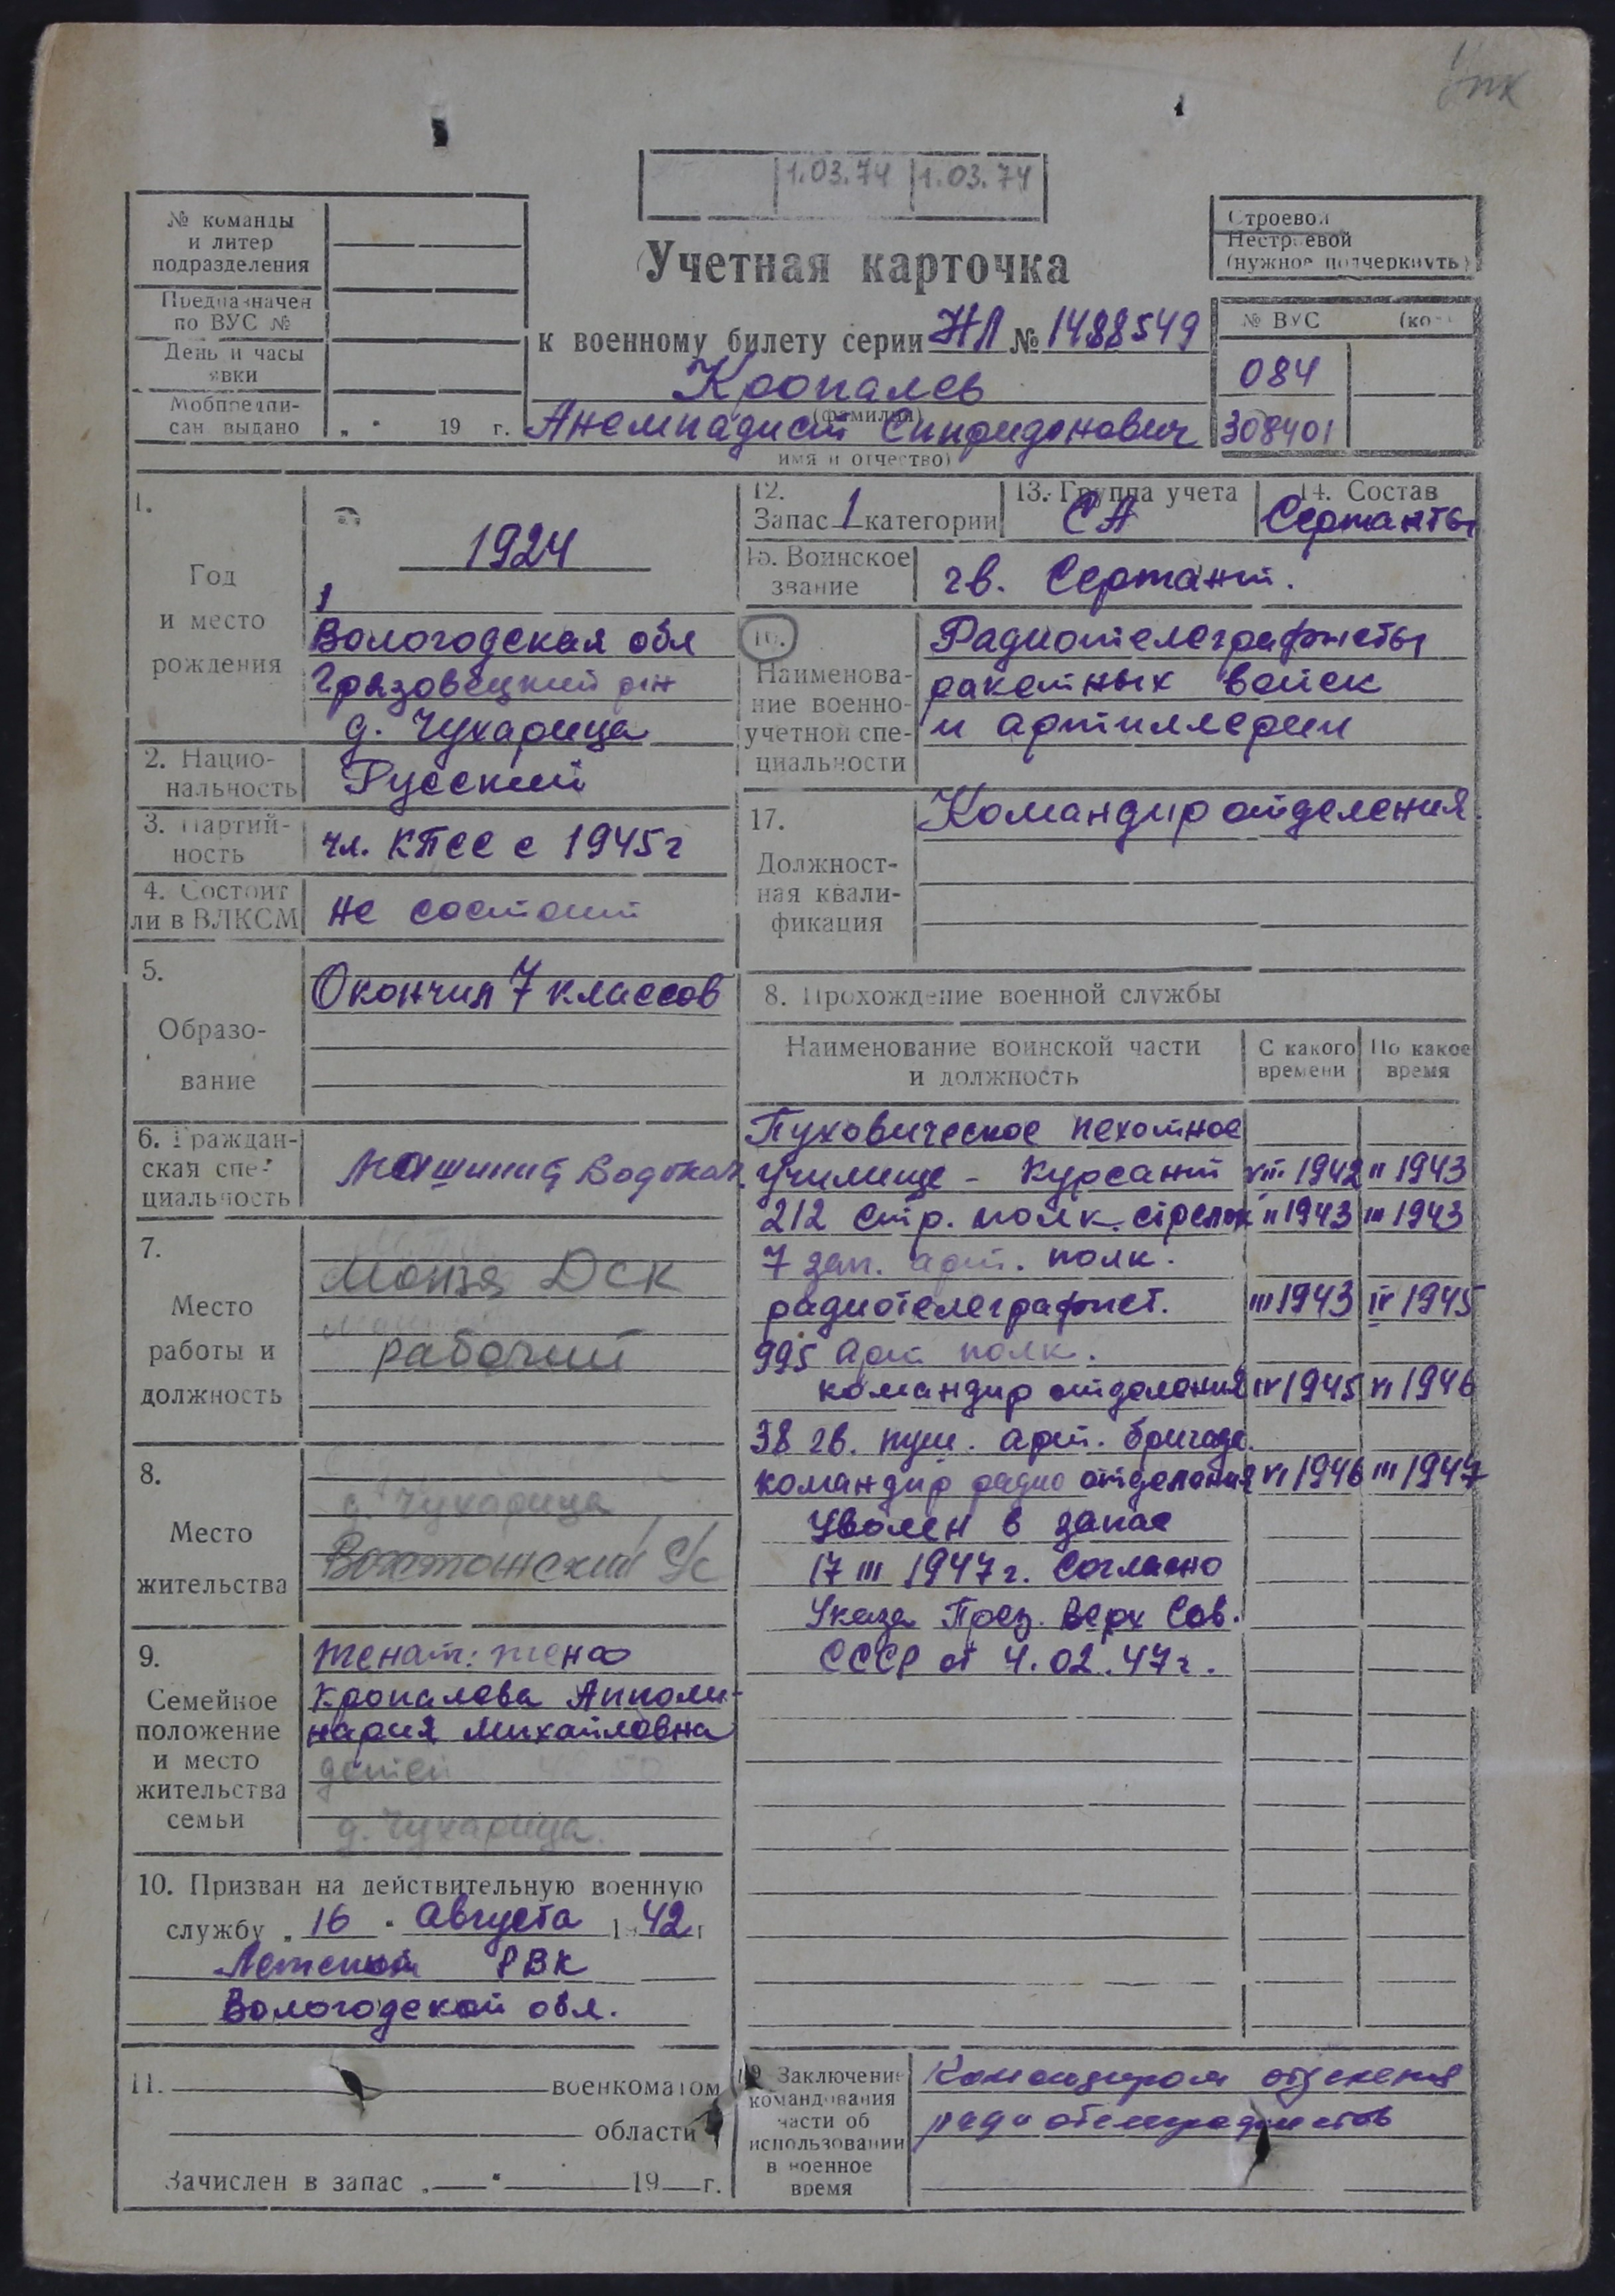 1.03.74 1.03.74
№ команды
и литер
подразделения
Предназначен
по ВУС №
День и часы
явки
Мобпредпи-
сан. выдано „ “ 19 г.
Учетная карточка
к военному билету серии НЛ № 1488549
Кропалев
(фамилия)
Анемпадист Спиридонович
имя и отчество)
Строевой
Нестроевой
(нужное подчеркнуть)
№ ВУС (ко
084
308401
1.
Год
и место
рождения
1924
Вологодская обл
Грязовецкий р-н
д. Чухарица
2. Нацио-
нальность
Русский
3. Партий-
ность
чл. КПСС с 1945г
4. Состоит
ли в ВЛКСМ
не состоит
5.
Образо-
вание
Окончил 7 классов
6. Граждан-
ская спе-
циальность
Машинист Водокач.
7.
Место
работы и
должность
Монза ДСК
рабочий
8.
Место
жительства
д. Чухарица
Вохтожский с/с
9.
Семейное
положение
и место
жительства
семьи
Женат: жена
Кропалева Апполи-
нария Михайловна
детей
д. Чухарица.
10. Призван на действительную военную
службу „ 16 “ Августа 1942 г
РВК
Вологодской обл.
11. военкоматом
области
Зачислен в запас „ “ 19 г.
12.
Запас 1 категории
13. Группа учета
СА
14. Состав
Сержанты
15. Воинское
звание
гв. Сержант.
16.
Наименова-
ние военно-
учетной спе-
циальности
Радиотелеграфисты
ракетных войск
и артиллерии
17.
Должност-
ная квали-
фикация
Командир отделения
8. Прохождение военной службы
Наименование воинской части
и должность
С какого
времени
По какое
время
Пуховическое пехотное
училище - Курсант VIII 1942 II 1943
212 Стр. полк. стрелок II 1943 III 1943
7 зап. арт. полк.
радиотелеграфист. III 1943 IV 1945
995 Арт полк.
командир отделения IV 1945 VI 1946
38 гв. пуш. арт. бригада.
командир радио отделения VI 1946 III 1947
Уволен в запас
17 III 1947г. Согласно
Указа През. Верх Сов.
СССР от 4.02.47г.
19 Заключение
командования
части об
использовании
в военное
время
Командиром отделения
радиотелеграфистов